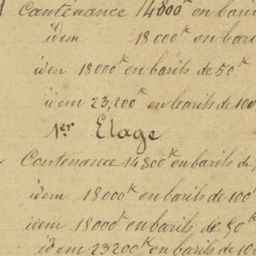 Contenance 14800ᵏ en barils
idem 18000ᵏ en bari
idem 18000ᵏ en barils de 50ᵏ
idem 23,200ᵏ en barils de 100
1er Etage
Contenance 14800ᵏ en barils de
idem 18000ᵏ en barils de 100
idem 18000ᵏ en barils de 50ᵏ
idem 23200ᵏ en barils de 10